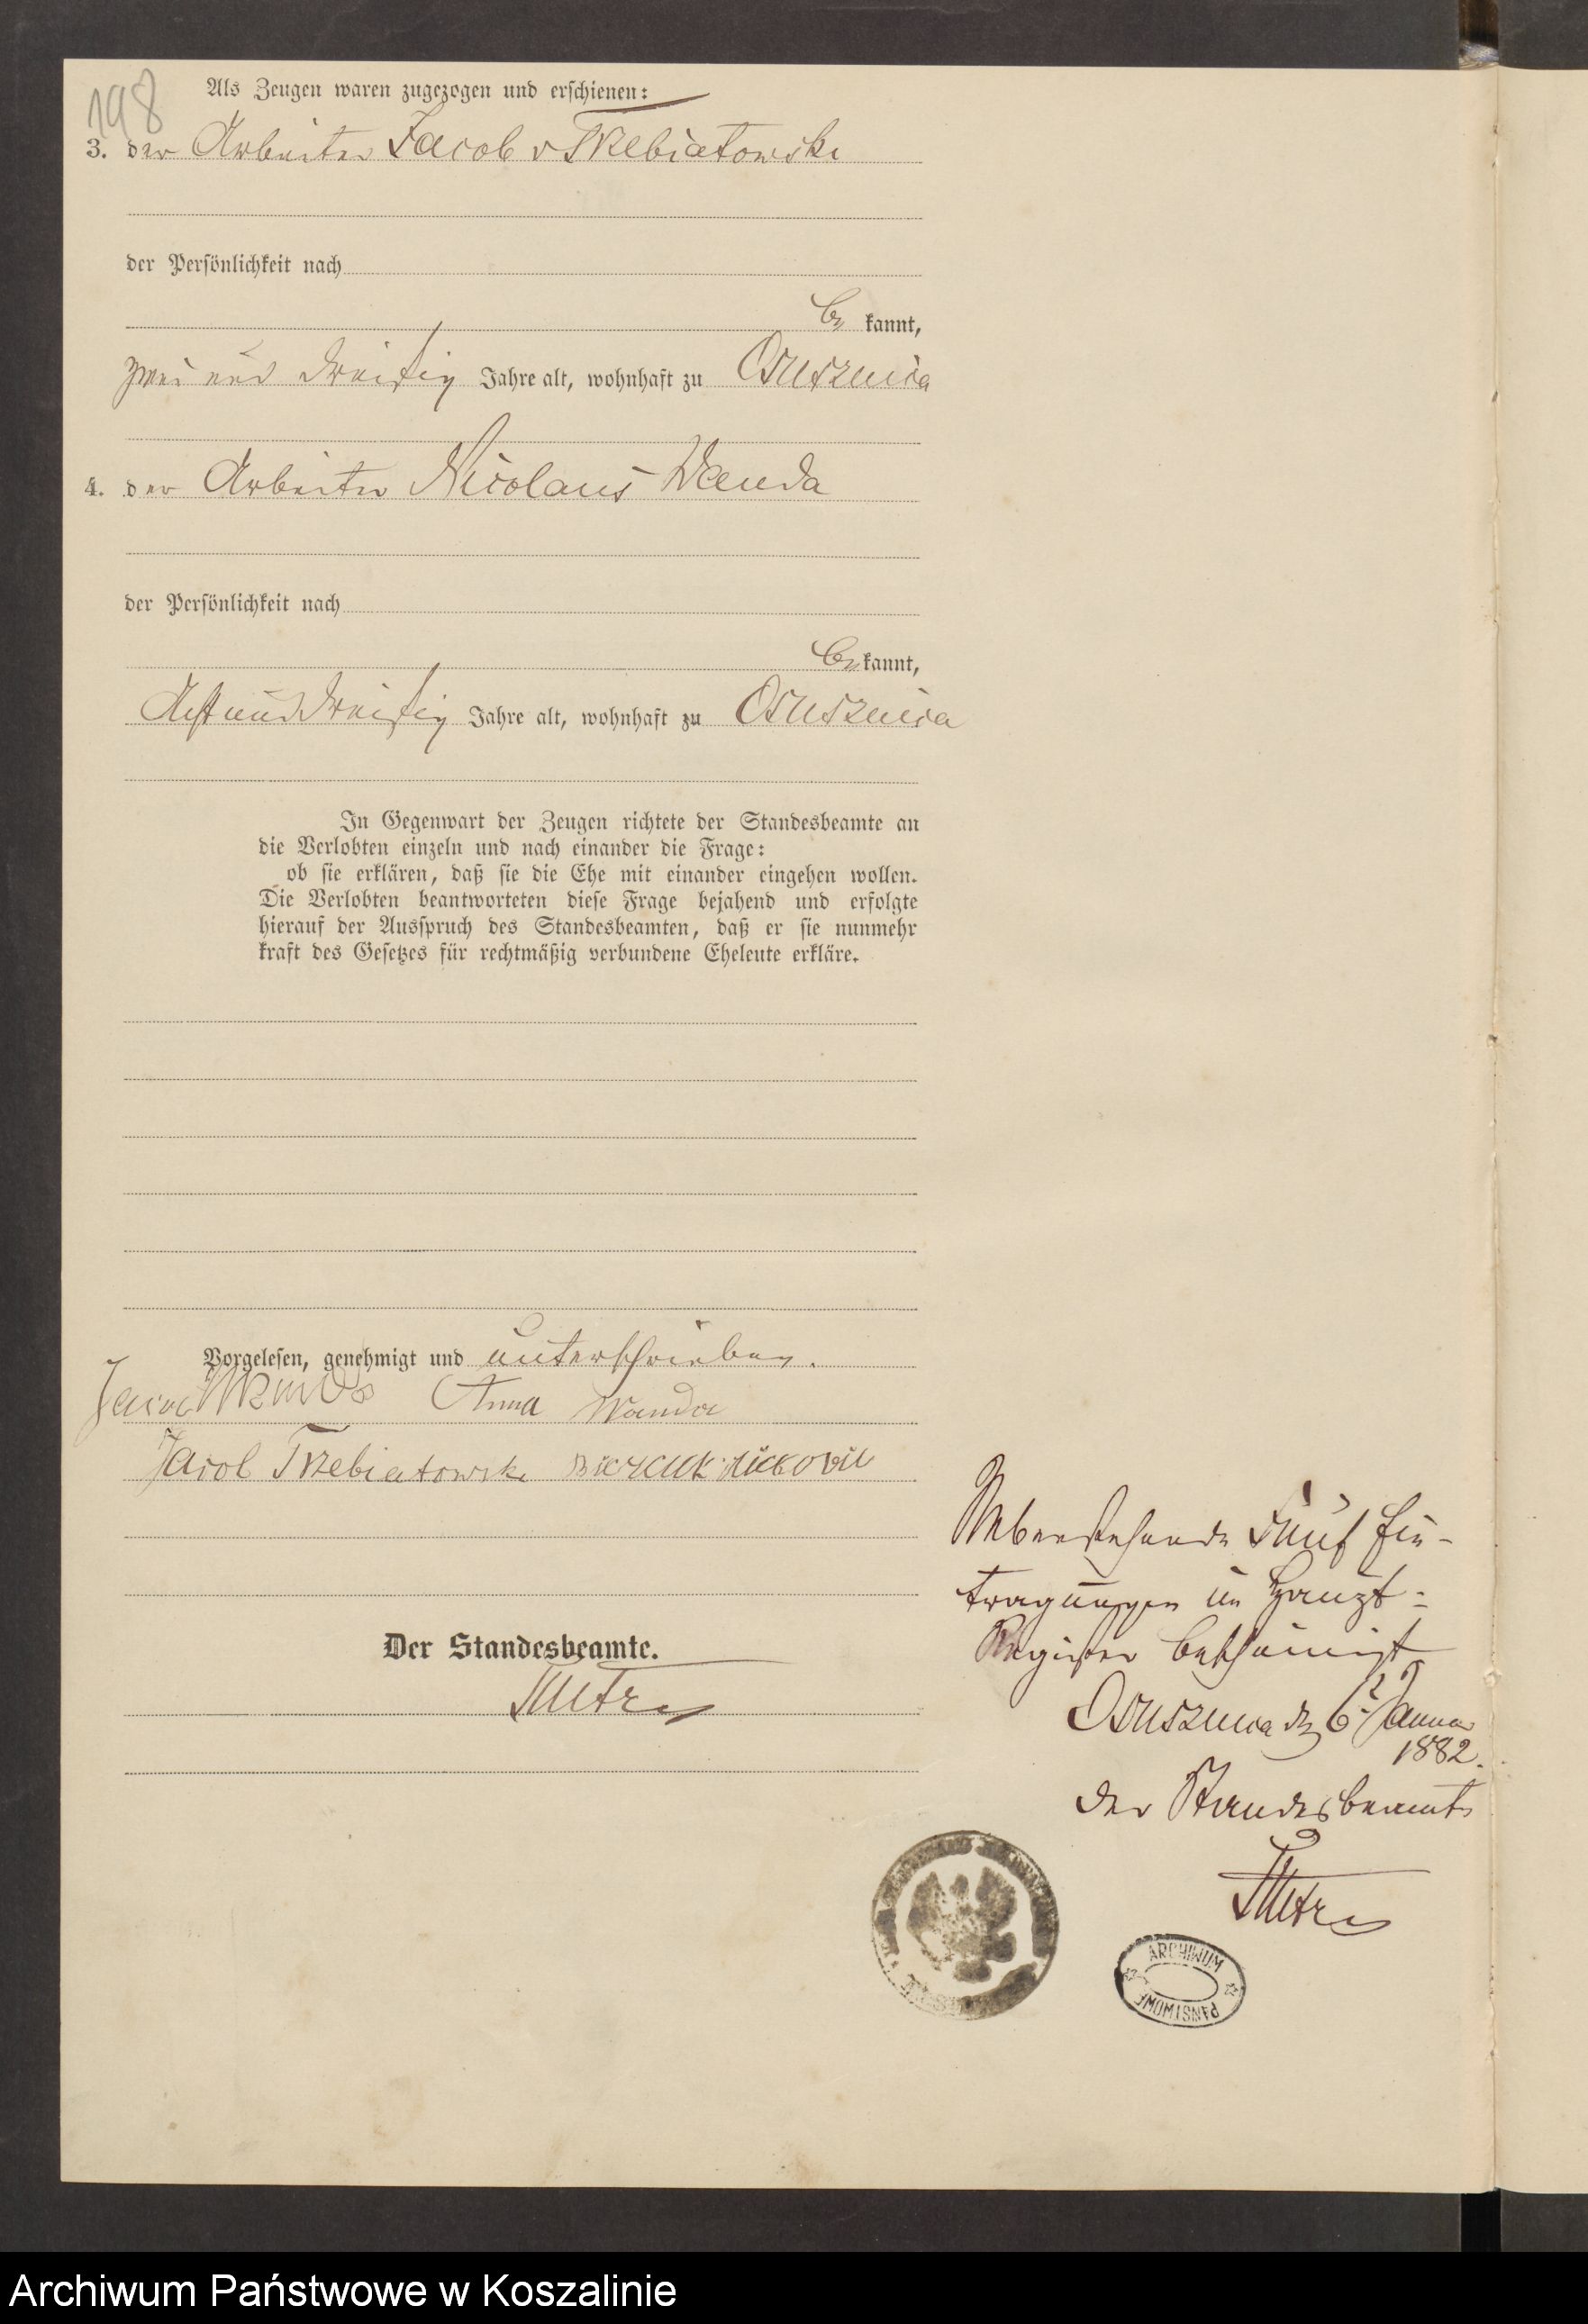 198
Als Zeugen waren zugezogen und erschienen:
3. der Arbeiter Jacob v Trzebiatowski
der Persönlichkeit nach
be kannt,
zwei und dreißig Jahre alt, wohnhaft zu Osusznica
4. der Arbeiter Nicolaus Wanda
der Persönlichkeit nach
be kannt,
Acht und dreißig Jahre alt, wohnhaft zu Osusznica
In Gegenwart der Zeugen richtete der Standesbeamte an
die Verlobten einzeln und nach einander die Frage:
ob sie erklären, daß sie die Ehe mit einander eingehen wollen.
Die Verlobten beantworteten diese Frage bejahend und erfolgte
hierauf der Ausspruch des Standesbeamten, daß er sie nunmehr
kraft des Gesetzes für rechtmäßig verbundene Eheleute erkläre.
Vorgelesen, genehmigt und unterschrieben.
Jacob Anna Wanda
Jacob Trzebiatowski
Der Standesbeamte.
Ueberstehende Fünf Ein-
tragungen im Haupt-
Register bescheinigt
Osusznica d 6t Januar
1882.
Der Standesbeamte
ARCHIWUM
PAŃSTWOWE
Archiwum Państwowe w Koszalinie